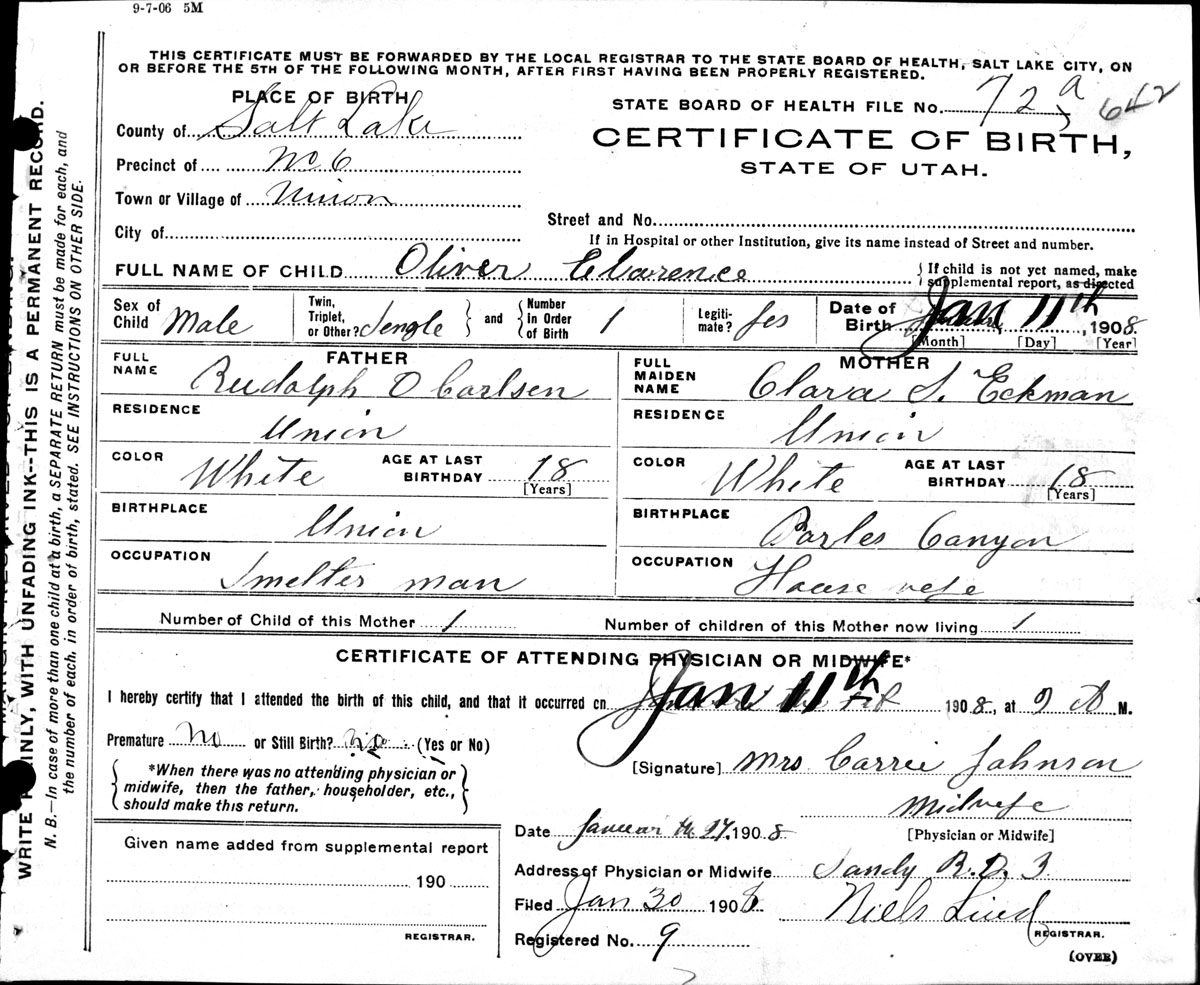 9-7-06 5M
THIS CERTIFICATE MUST BE FORWARDED BY THE LOCAL REGISTRAR TO THE STATE BOARD OF HEALTH, SALT LAKE CITY, ON
OR BEFORE THE 5TH OF THE FOLLOWING MONTH, AFTER FIRST HAVING BEEN PROPERLY REGISTERED.
PLACE OF BIRTH
STATE BOARD OF HEALTH FILE No. 72 a 642
County of Salt Lake
CERTIFICATE OF BIRTH,
STATE OF UTAH.
Precinct of No 6
Town or Village of Union
Street and No.
City of
If in Hospital or other Institution, give its name instead of Street and number.
FULL NAME OF CHILD Oliver Clarence
If child is not yet named, make
supplemental report, as directed
Sex of Child Male
Twin, Triplet, or Other? Sengle and Number in Order of Birth 1
Legiti-mate? Yes
Date of Birth Jan 11th, 1908.
[Month] [Day] [Year]
FATHER
FULL NAME Rudolph O Carlsen
RESIDENCE Union
COLOR White AGE AT LAST BIRTHDAY 18
[Years]
BIRTHPLACE Union
OCCUPATION Smelter man
MOTHER
FULL MAIDEN NAME Clara S. Eckman
RESIDENCE Union
COLOR White AGE AT LAST BIRTHDAY 18
[Years]
BIRTHPLACE Canyon
OCCUPATION House wefe
Number of Child of this Mother 1 Number of children of this Mother now living 1
CERTIFICATE OF ATTENDING PHYSICIAN OR MIDWIFE*
I hereby certify that I attended the birth of this child, and that it occurred on Jan 11th 1908, at 9 M.
Premature No or Still Birth? no (Yes or No)
*When there was no attending physician or
midwife, then the father, householder, etc.,
should make this return.
[Signature] Mrs Carrie Johnson
Midwefe
[Physician or Midwife]
Date 27. 1908
Address of Physician or Midwife Sandy R.D. 3
Filed Jan 30 1908 Niels Lind
REGISTRAR.
Registered No. 9
(OVER)
Given name added from supplemental report
190
REGISTRAR.
WRITE PLAINLY, WITH UNFADING INK--THIS IS A PERMANENT RECORD.
N. B.—In case of more than one child at a birth, a SEPARATE RETURN must be made for each, and
the number of each, in order of birth, stated. SEE INSTRUCTIONS ON OTHER SIDE.